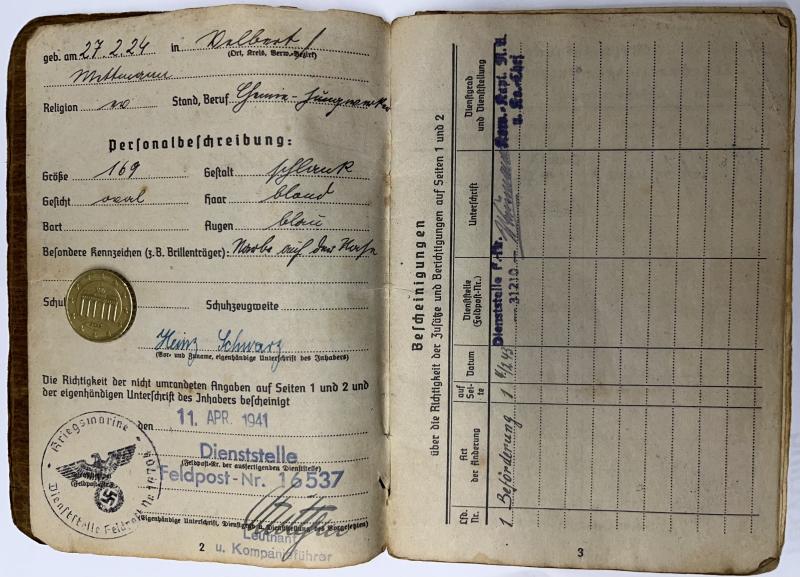 geb. am 27.2.24 in Velbert /
(Ort, Kreis, Verw.-Bezirk)
Mettmann
Religion ev Stand, Beruf Chemie-Jungwerker
Personalbeschreibung:
Größe 169 Gestalt schlank
Gesicht oval Haar blond
Bart Augen blau
Besondere Kennzeichen (z.B. Brillenträger): Narbe auf der Nase
Schuhzeugweite
Heinz Schwarz
(Vor- und Zuname, eigenhändige Unterschrift des Inhabers)
Die Richtigkeit der nicht umrandeten Angaben auf Seiten 1 und 2 und
der eigenhändigen Unterschrift des Inhabers bescheinigt
den 11. APR. 1941
Dienststelle
(Feldpost-Nr. der ausfertigenden Dienststelle)
Feldpost-Nr. 16537
Kriegsmarine
Dienststelle Feldpost Nr
(Eigenhändige Unterschrift, Dienstgrad u. Dienststellung des Vorgesetzten)
Leutnant
u. Kompanieführer
2
Bescheinigungen
über die Richtigkeit der Zusätze und Berichtigungen auf Seiten 1 und 2
Lfd. Nr. Art der Änderung auf Seite Datum Dienststelle (Feldpost-Nr.) Unterschrift Dienstgrad und Dienststellung
1. Beförderung 1 Dienststelle 31210 u. Ko.-Chef
3